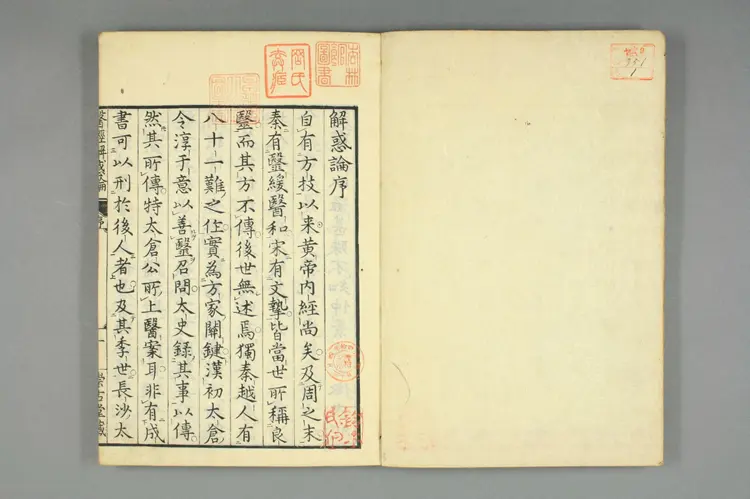 解惑論序
自有方技以来黄帝内經尚矣及周之末
秦有醫緩醫和宋有文摯皆當世所稱良
醫而其方不傳後世無述焉獨秦越人有
八十一難之作實為方家關鍵漢初太倉
令淳于意以善醫召問太史錄其事以傳
然其所傳特太倉公所上醫案耳非有成
書可以刑於後人者也及其季世長沙太
醫經解惑論
序
一